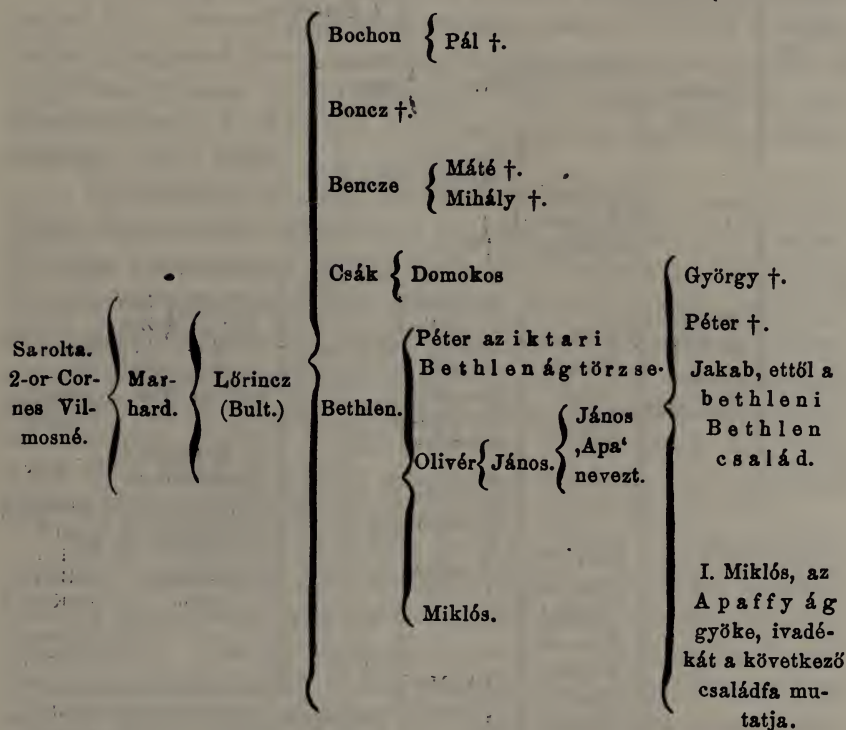 Sarolta.
2-or Cor-
nes Vil-
mosné.
Mar-
hard.
Lőrincz
(Bult.)
Bochon
Pál †.
Boncz †.
Bencze
Máté †.
Mihály †.
Csák
Domokos
Bethlen.
Péter az iktari
Bethlen ág törzse.
Olivér
János.
János
‚Apa‘
nevezt.
Miklós.
György †.
Péter †.
Jakab, ettől a
bethleni
Bethlen
család.
I. Miklós, az
Apaffy ág
gyöke, ivadé-
kát a következő
családfa mu-
tatja.